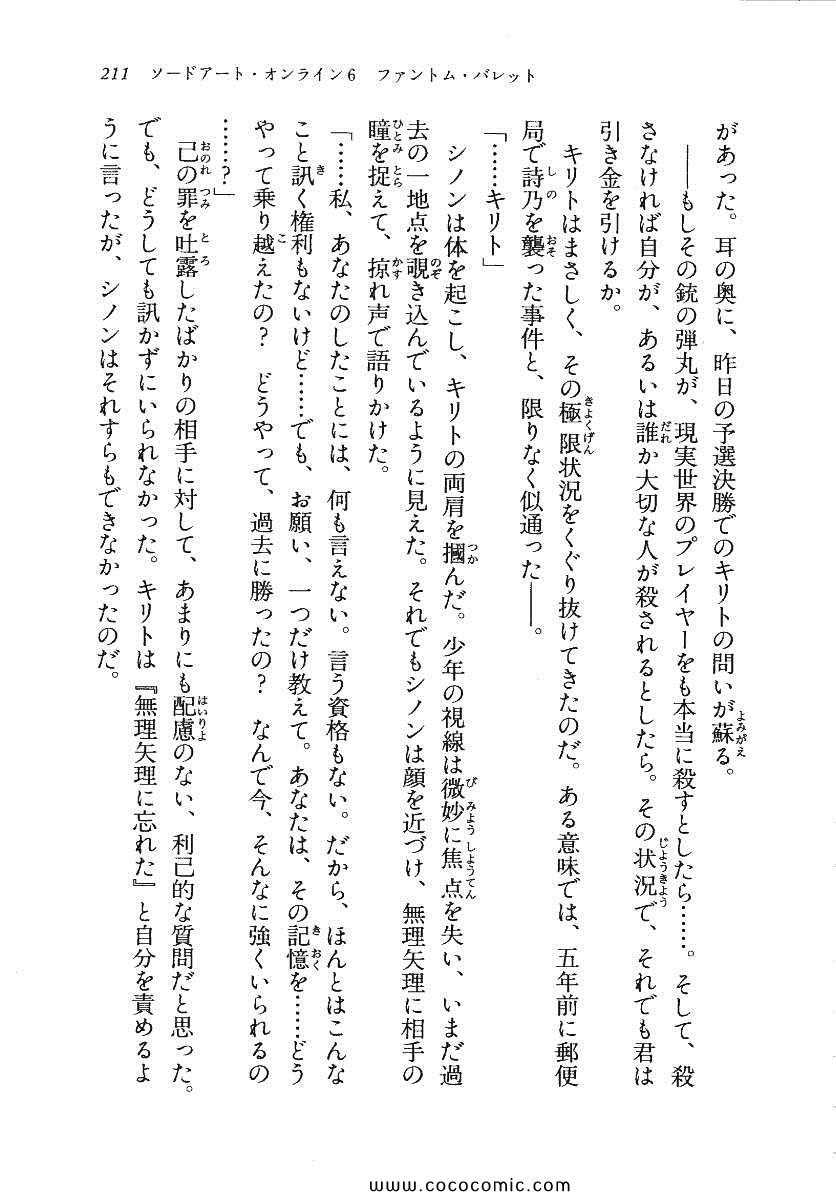 211　ソードアート・オンライン6　ファントム・バレット
があった。耳の奥に、昨日の予選決勝でのキリトの問いが蘇る。
――もしその銃の弾丸が、現実世界のプレイヤーをも本当に殺すとしたら……。そして、殺
さなければ自分が、あるいは誰か大切な人が殺されるとしたら。その状況で、それでも君は
引き金を引けるか。
キリトはまさしく、その極限状況をくぐり抜けてきたのだ。ある意味では、五年前に郵便
局で詩乃を襲った事件と、限りなく似通った――。
「……キリト」
シノンは体を起こし、キリトの両肩を摑んだ。少年の視線は微妙に焦点を失い、いまだ過
去の一地点を覗き込んでいるように見えた。それでもシノンは顔を近づけ、無理矢理に相手の
瞳を捉えて、掠れ声で語りかけた。
「……私、あなたのしたことには、何も言えない。言う資格もない。だから、ほんとはこんな
こと訊く権利もないけど……でも、お願い、一つだけ教えて。あなたは、その記憶を……どう
やって乗り越えたの？　どうやって、過去に勝ったの？　なんで今、そんなに強くいられるの
……？」
己の罪を吐露したばかりの相手に対して、あまりにも配慮のない、利己的な質問だと思った。
でも、どうしても訊かずにいられなかった。キリトは『無理矢理に忘れた』と自分を責めるよ
うに言ったが、シノンはそれすらもできなかったのだ。
www.cococomic.com